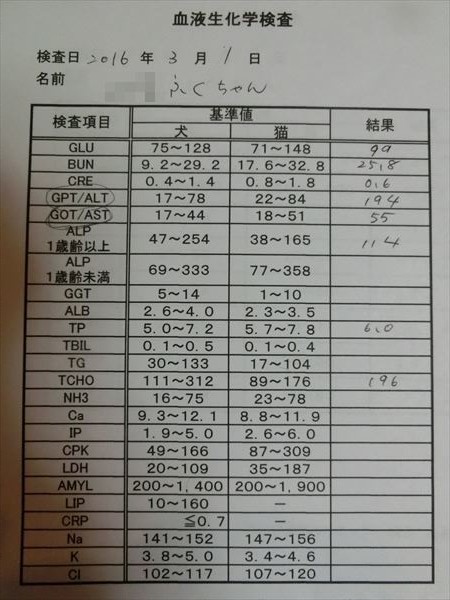 血液生化学検査
検査日 2016 年 3 月 1 日
名前 ふくちゃん
検査項目 基準値 結果
犬 猫
GLU 75〜128 71〜148 99
BUN 9.2〜29.2 17.6〜32.8 25.8
CRE 0.4〜1.4 0.8〜1.8 0.6
GPT/ALT 17〜78 22〜84 194
GOT/AST 17〜44 18〜51 55
ALP
1歳齢以上 47〜254 38〜165 114
ALP
1歳齢未満 69〜333 77〜358
GGT 5〜14 1〜10
ALB 2.6〜4.0 2.3〜3.5
TP 5.0〜7.2 5.7〜7.8 6.0
TBIL 0.1〜0.5 0.1〜0.4
TG 30〜133 17〜104
TCHO 111〜312 89〜176 196
NH3 16〜75 23〜78
Ca 9.3〜12.1 8.8〜11.9
IP 1.9〜5.0 2.6〜6.0
CPK 49〜166 87〜309
LDH 20〜109 35〜187
AMYL 200〜1,400 200〜1,900
LIP 10〜160 −
CRP ≦0.7 −
Na 141〜152 147〜156
K 3.8〜5.0 3.4〜4.6
Cl 102〜117 107〜120